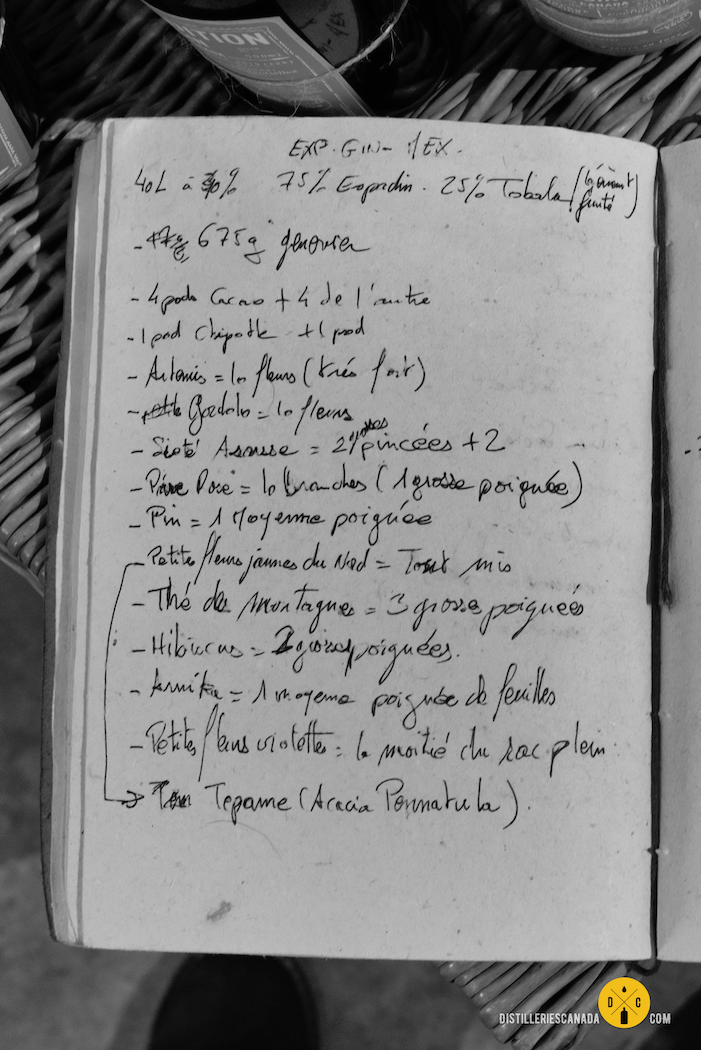 EXP. GIN - MEX.
40L à 30% 75% Espadin. 25% Tobala (légèrement fruité)
- 675g genevrier
- 4 pods Cacao + 4 de l'autre
- 1 pod Chipotle + 1 pod
- = 10 fleurs (très fort)
- = 10 fleurs
- = 2 grosses pincées + 2
- = 10 branches (1 grosse poignée)
- Pin = 1 Moyenne poignée
- Petites fleurs jaunes du Nord = Tout mis
- Thé de Montagnes = 3 grosse poignées
- Hibiscus = 2 grosses poignées.
- Arnika = 1 moyenne poignée de feuilles
- Petites fleurs violettes = la moitié du sac plein
→ Tepame (Acacia Pennatula).
DISTILLERIESCANADA
D C
COM